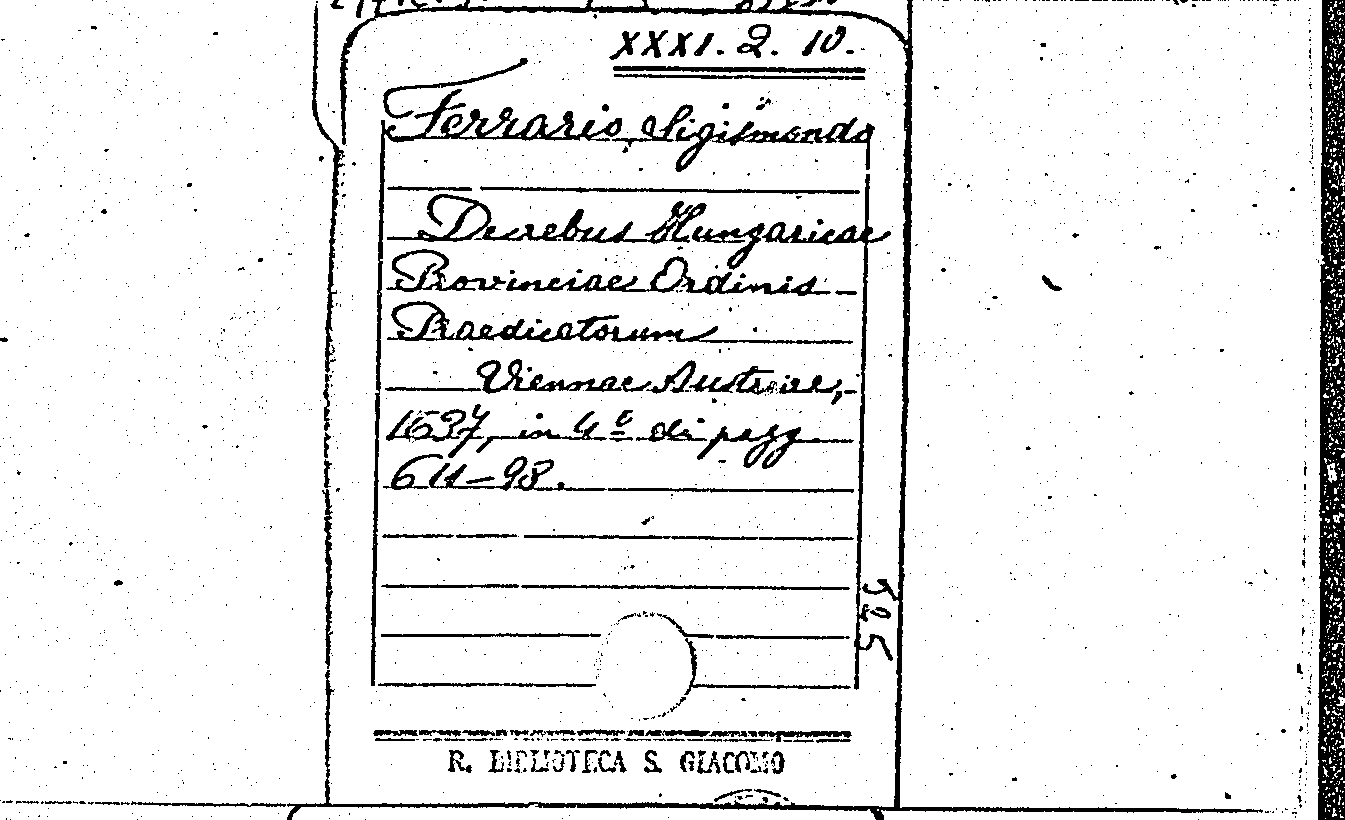 XXXI. 2. 10.
Ferrario Sigismondo
De rebus Hungaricae
Provinciae Ordinis
Praedicatorum
Viennae Austriae,
1637, in 4º di pagg
611-98.
525
R. BIBLIOTECA S. GIACOMO